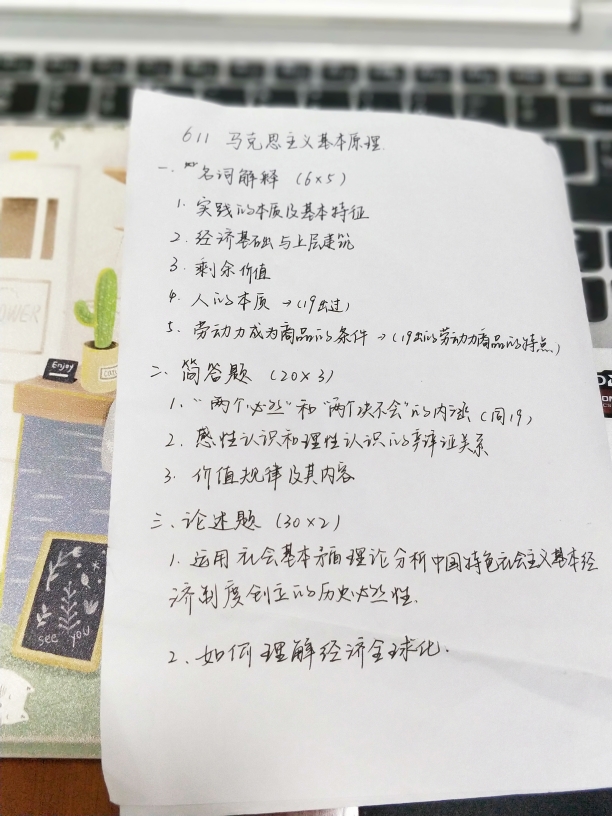 611 马克思主义基本原理.
一. 名词解释 (6×5)
1. 实践的本质及基本特征
2. 经济基础与上层建筑
3. 剩余价值
4. 人的本质 → (19出过)
5. 劳动力成为商品的条件 → (19出的劳动力商品的特点)
二. 简答题 (20×3)
1. "两个必然"和"两个决不会"的内涵 (同19)
2. 感性认识和理性认识的辩证关系
3. 价值规律及其内容
三. 论述题 (30×2)
1. 运用社会基本矛盾理论分析中国特色社会主义基本经
济制度创立的历史必然性.
2. 如何理解经济全球化.
Enjoy
see you